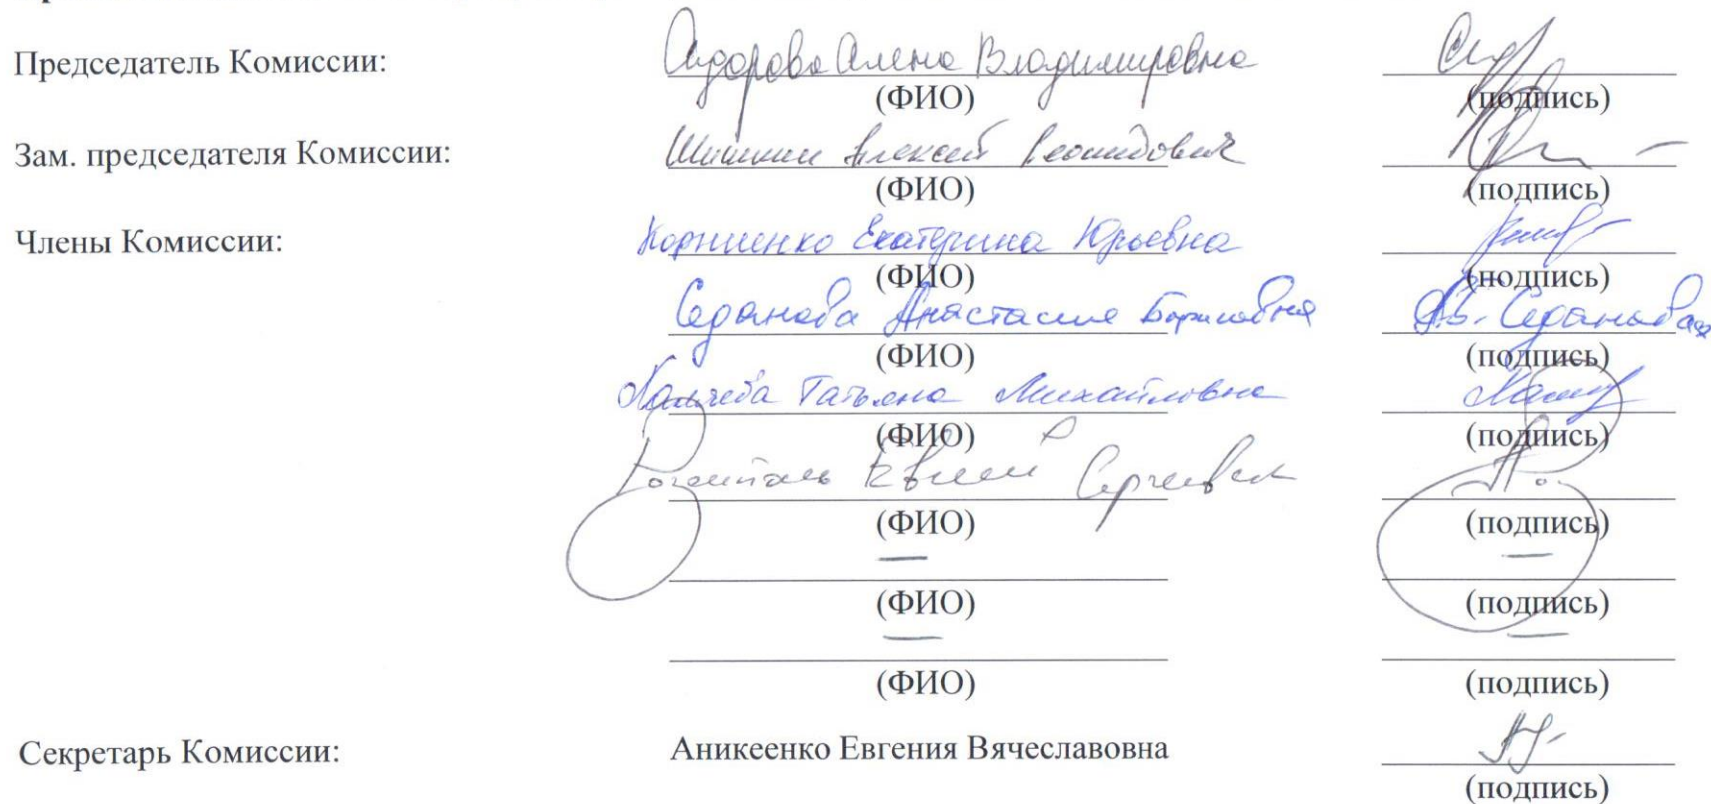 Председатель Комиссии: Сидорова Алена Владимировна
(ФИО) (подпись)
Зам. председателя Комиссии: Шишкин Алексей Леонидович
(ФИО) (подпись)
Члены Комиссии: Корниенко Екатерина Юрьевна
(ФИО) (подпись)
Седанова Анастасия Борисовна АБ. Седанова
(ФИО) (подпись)
Татьяна Михайловна
(ФИО) (подпись)
Сергеевич
(ФИО) (подпись)
—  —
(ФИО) (подпись)
—  —
(ФИО) (подпись)
Секретарь Комиссии: Аникеенко Евгения Вячеславовна
(подпись)